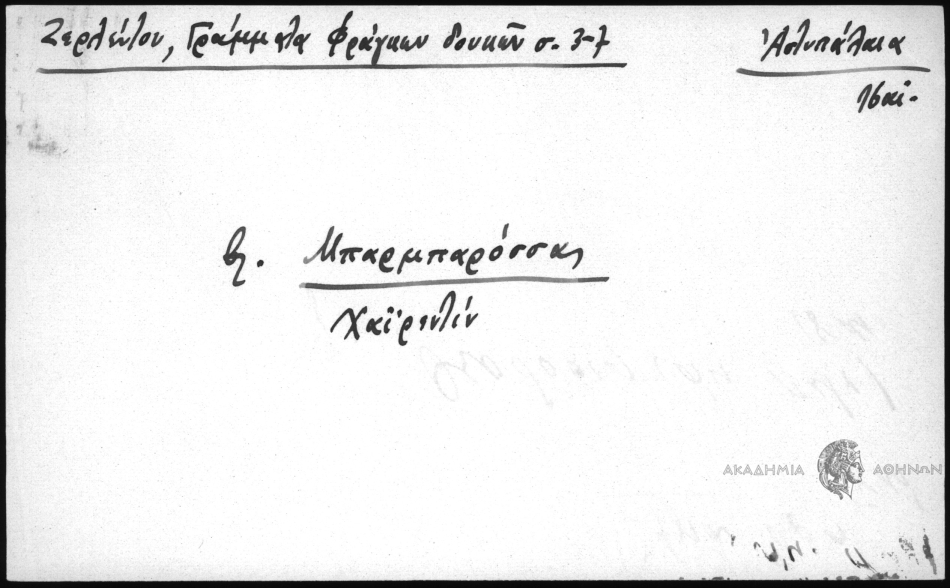 Ζερλέντου, Γράμματα Φράγκων δουκῶν σ. 3-7
Ἀστυπάλαια
16 αἰ.
βλ. Μπαρμπαρόσσας
Χαϊρεντίν
ΑΚΑΔΗΜΙΑ ΑΘΗΝΩΝ